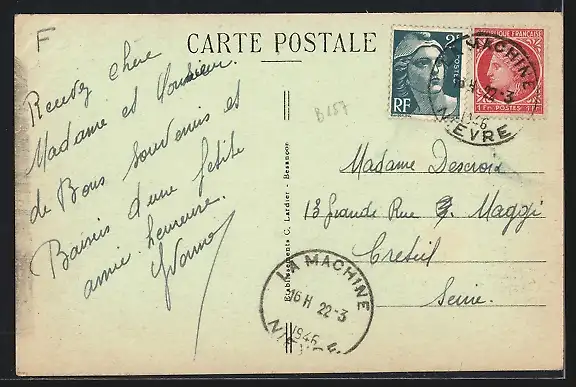 F
CARTE POSTALE
Recevez chère
Madame et Monsieur.
de Bons Souvenirs et
Baisers d'une petite
amie heureuse.
Yvonne
B157
Etablissements C. Lardier - Besançon
2F
POSTES
RF
RÉPUBLIQUE FRANÇAISE
1 Fr POSTES 1 Fr
LA MACHINE
16 H 22-3
1946
NIÈVRE
Madame Descroix
13 Grande Rue Maggi
Creteil
Seine.
LA MACHINE
16 H 22-3
1946
NIÈVRE